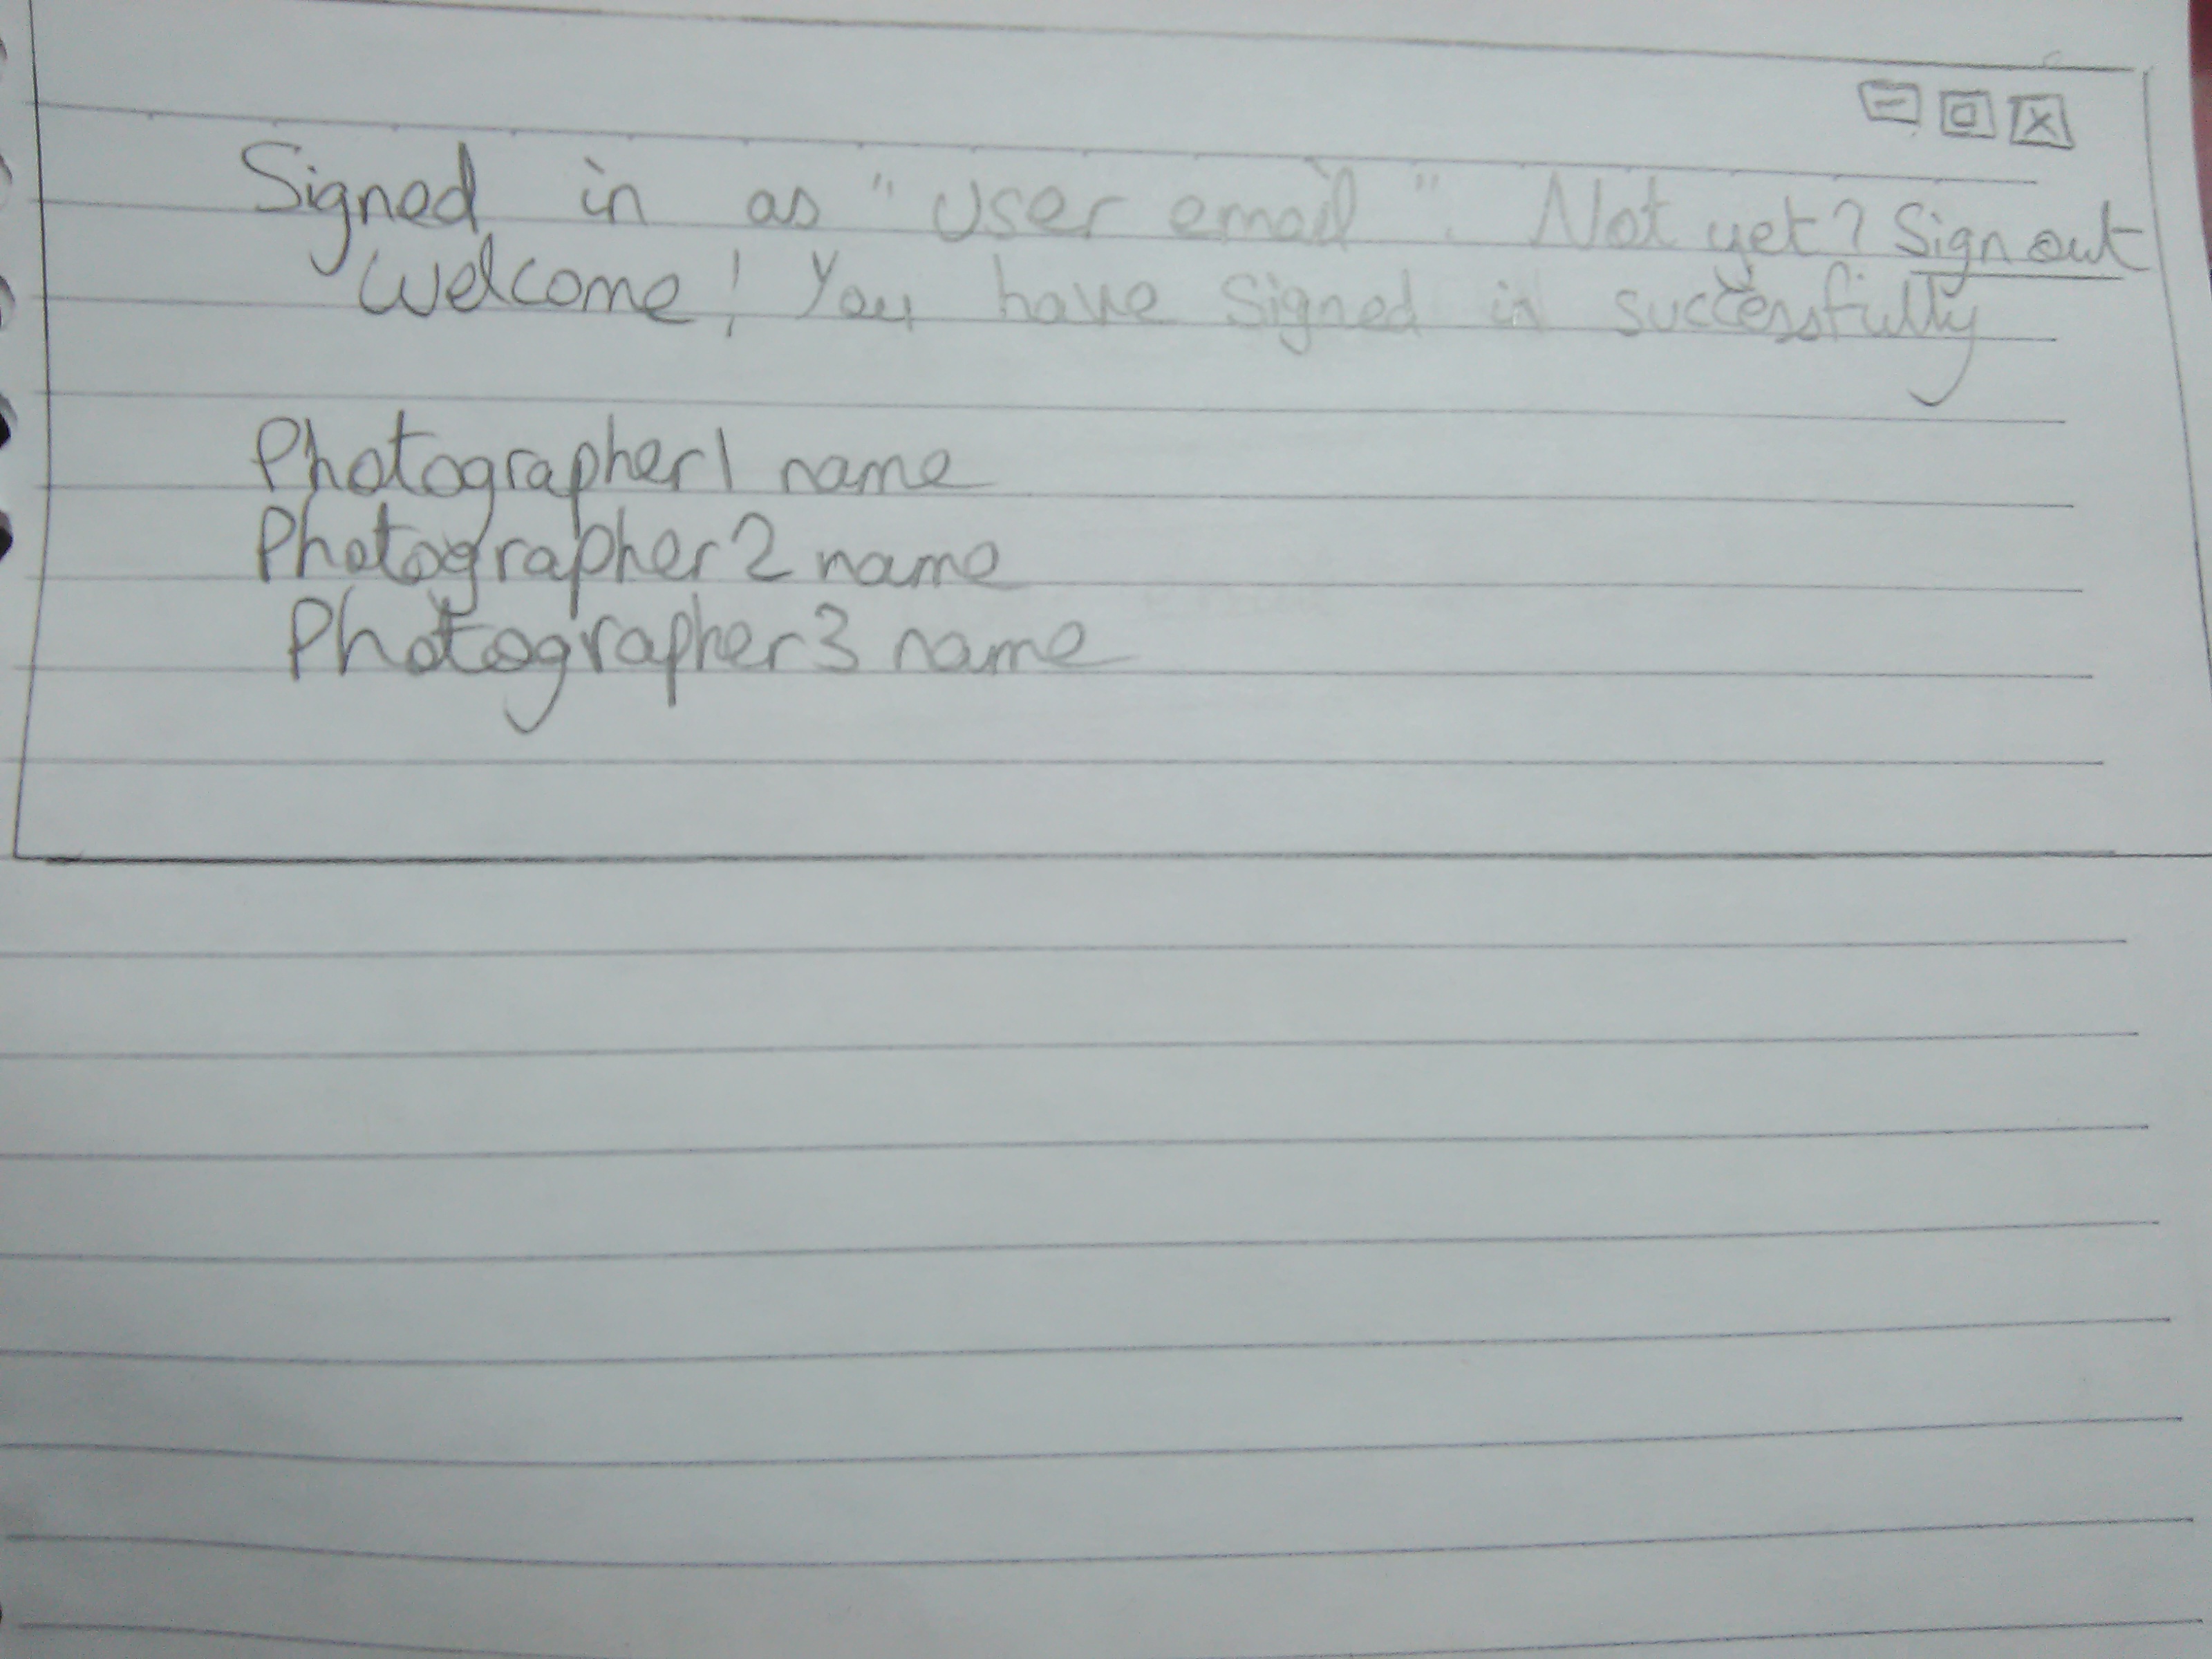 Signed in as "User email". Not yet? Sign out
Welcome! You have Signed in successfully
Photographer1 name
Photographer2 name
Photographer3 name